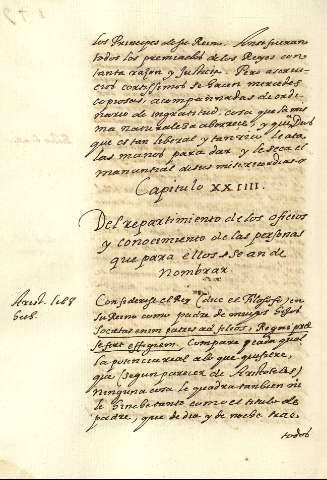 los Principes de su Reino.
todos los premiados de los Reyes con
tanta razon y Justicia. Pero a servi
cios cortissimos se hacen mercedes
copiosas, acompañadas de orde
nario de ingratitud, cosa que la mis
ma naturaleza aborrece, y que Dios
que es tan liberal y tan rico le ata
las manos para dar y le seca el
manantial de sus misericordias
Capitulo XXIIII.
Del repartimiento de los oficios
y conocimiento de las personas
que para ellos se an de
nombrar
Arist. lib 8
Confiderese el Rey (dice el Filosofo) en
su Reino como padre de muchos hijos
Societas enim patris ad filios, Regni præ
se fert effigiem. Compare cada qual
la potencia real a lo que quisiere,
que (segun parecer de Aristoteles)
ninguna cosa le quadra tambien ni
le tanto como el titulo de
padre, que de dia y de noche trae
todos